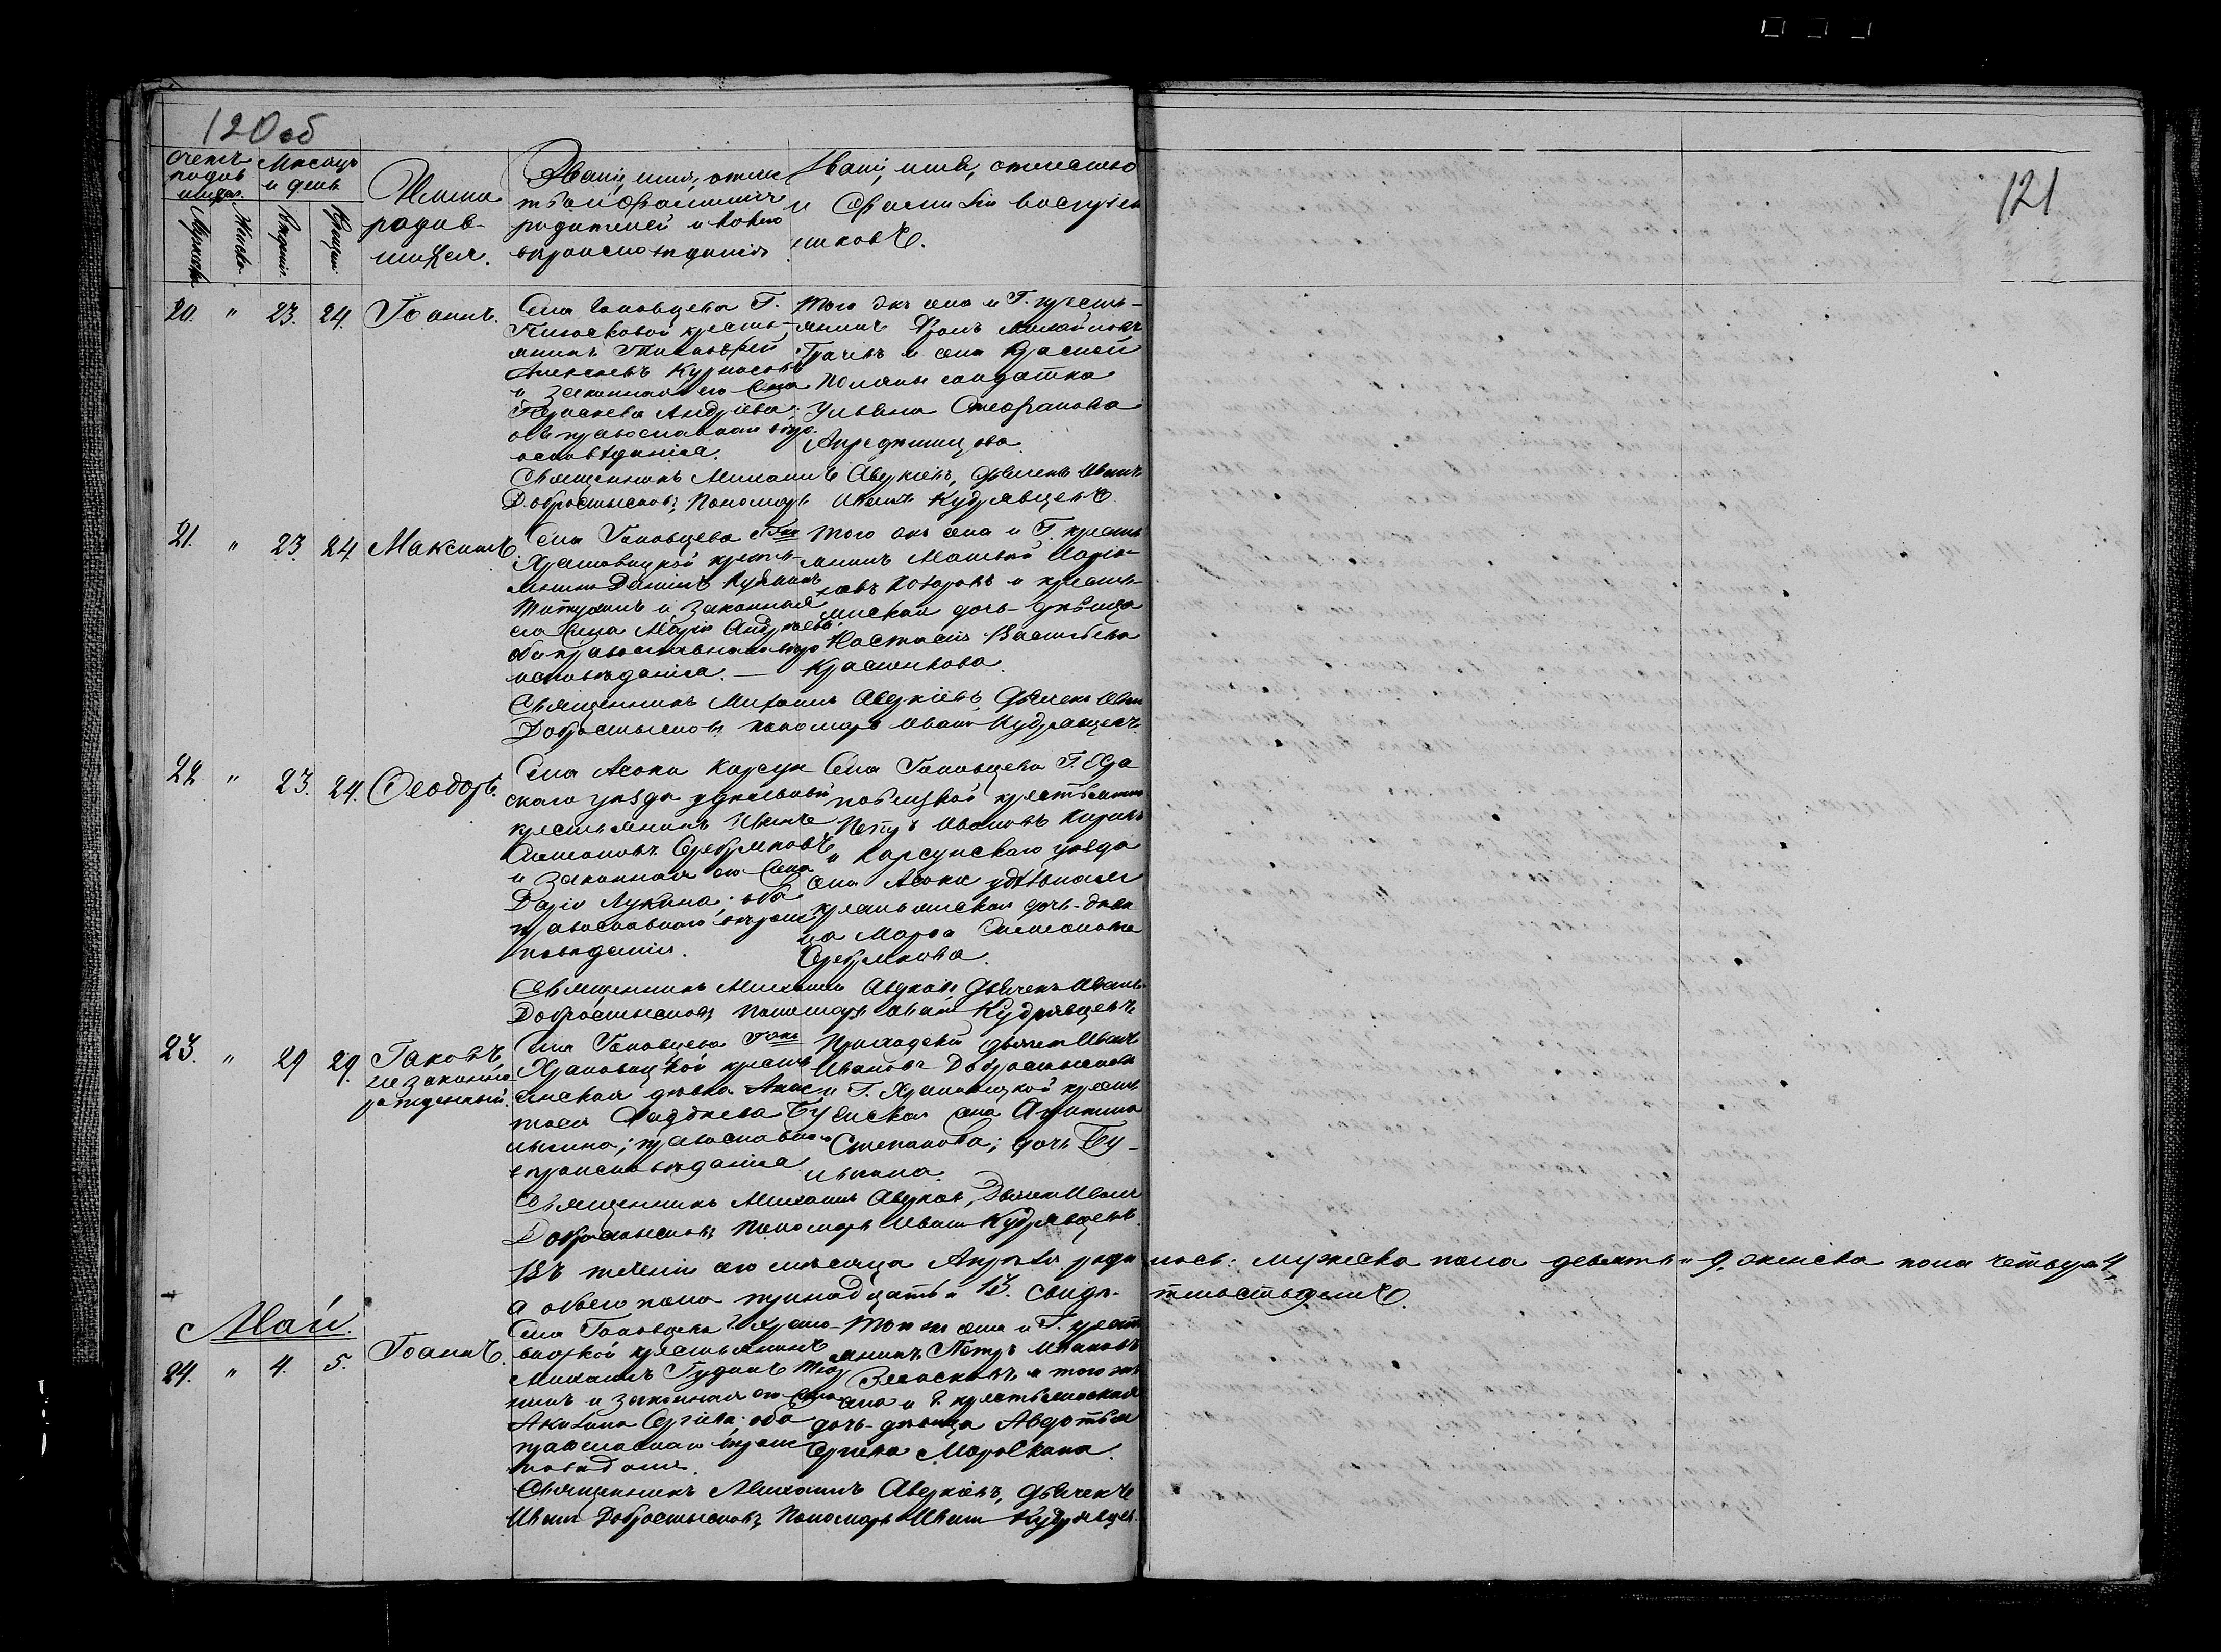 120об
121
Счетъ родив шихся.
Мужска
Женска
Месяцъ и день
Рожденія
Крещенія
Имена родив-шихся.
Званіе, имя, отчес тво и фамилія родителей и какого вѣроисповѣданія
Званіе, имя, отчество и Фамилія воспріем никовъ.
20. " 23. 24. Іоаннъ.
Села Головцева Г.
крестьянинъ
Алексѣевъ Курносовъ
и законная его жена
Параскева Андреева;
оба православнаго вѣро
исповѣданія.
Того же села и Г. кресть-
янинъ Михайловъ
Грачевъ и села Красной
Поляны солдатка
Ульяна Стефанова
Священникъ Михаилъ Аверкіевъ, дьячекъ Иванъ
Добросмысловъ, Пономарь Иванъ Кудрявцевъ
21. " 23 24 Максимъ.
Села Головцева Гна
Храповицкой кресть-
янинъ Даніилъ
и законная
его жена Марія Андреева;
оба православнаго вѣро
исповѣданія. —
Того же села и Г. кресть
янинъ Матвей
и кресть-
янская дочь-дѣвица
Настасія Васильева
Красненкова.
Священникъ Михаилъ Аверкіевъ, дьячекъ Иванъ
Добросмысловъ пономарь Иванъ Кудрявцевъ.
22 " 23. 24. Ѳеодоръ.
Села Асока Карсун
скаго уезда удельный
крестьянинъ Иванъ
Симеоновъ Серебряковъ
и законная его жена
Дарія Лукина; оба
православнаго вѣроис
повѣданія.
Села Головцева Г. Хра
повицкой крестьянинъ
Петръ Ивановъ
и Карсунскаго уезда
села Асока удѣльная
крестьянская дочь-дѣви
ца Марѳа Симеонова
Серебрякова.
Священникъ Михаилъ Аверкіевъ дьячекъ Иванъ
Добросмысловъ Пономарь Иванъ Кудрявцевъ
23. " 29 29. Іаковъ,
незаконно-
рожденный.
Села Головцева Гжи
Храповицкой кресть
янская девка Анас
тасія Фаддѣева Бу
лыгина; православнаго
вѣроисповѣданія
Приходскій дьячекъ Иванъ
Ивановъ Добросмысловъ
и Г. Храповицкой кресть
янская жена
Степанова; дочь Бу-
лыгина.
Священникъ Михаилъ Аверкіевъ, Дьячекъ Иванъ
Добросмысловъ Пономарь Иванъ Кудрявцевъ.
Въ теченіи сего месяца Апрѣля роди лось: мужеска пола девять "9. женска пола четыре "4
а обоего пола тринадцать " 13. Свидѣ- тельствуемъ.
Май.
24. " 4. 5. Іоаннъ.
Села Головцева Г. Храпо-
вицкой крестьянинъ
Михаилъ
и законная его жена
Акилина Сергіева; оба
православнаго вѣроис
повѣданія.
Того же села и Г. крест
янинъ Петръ Ивановъ
и того же
села и Г. крестьянская
дочь-дѣвица Авдотья
Сергіева Мороскина.
Священникъ Михаилъ Аверкіевъ, дьячекъ
Иванъ Добросмысловъ, Пономарь Иванъ Кудрявцев.